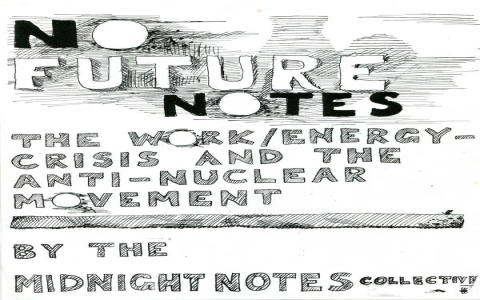 NO
FUTURE
NOTES
THE WORK/ENERGY-
CRISIS AND THE
ANTI-NUCLEAR
MOVEMENT
BY THE
MIDNIGHT NOTES COLLECTIVE